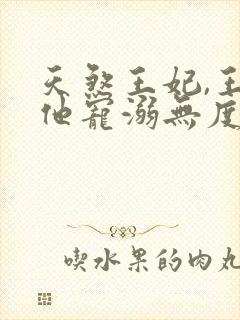 天煞王妃,王
他寵溺無度
喫水果的肉丸